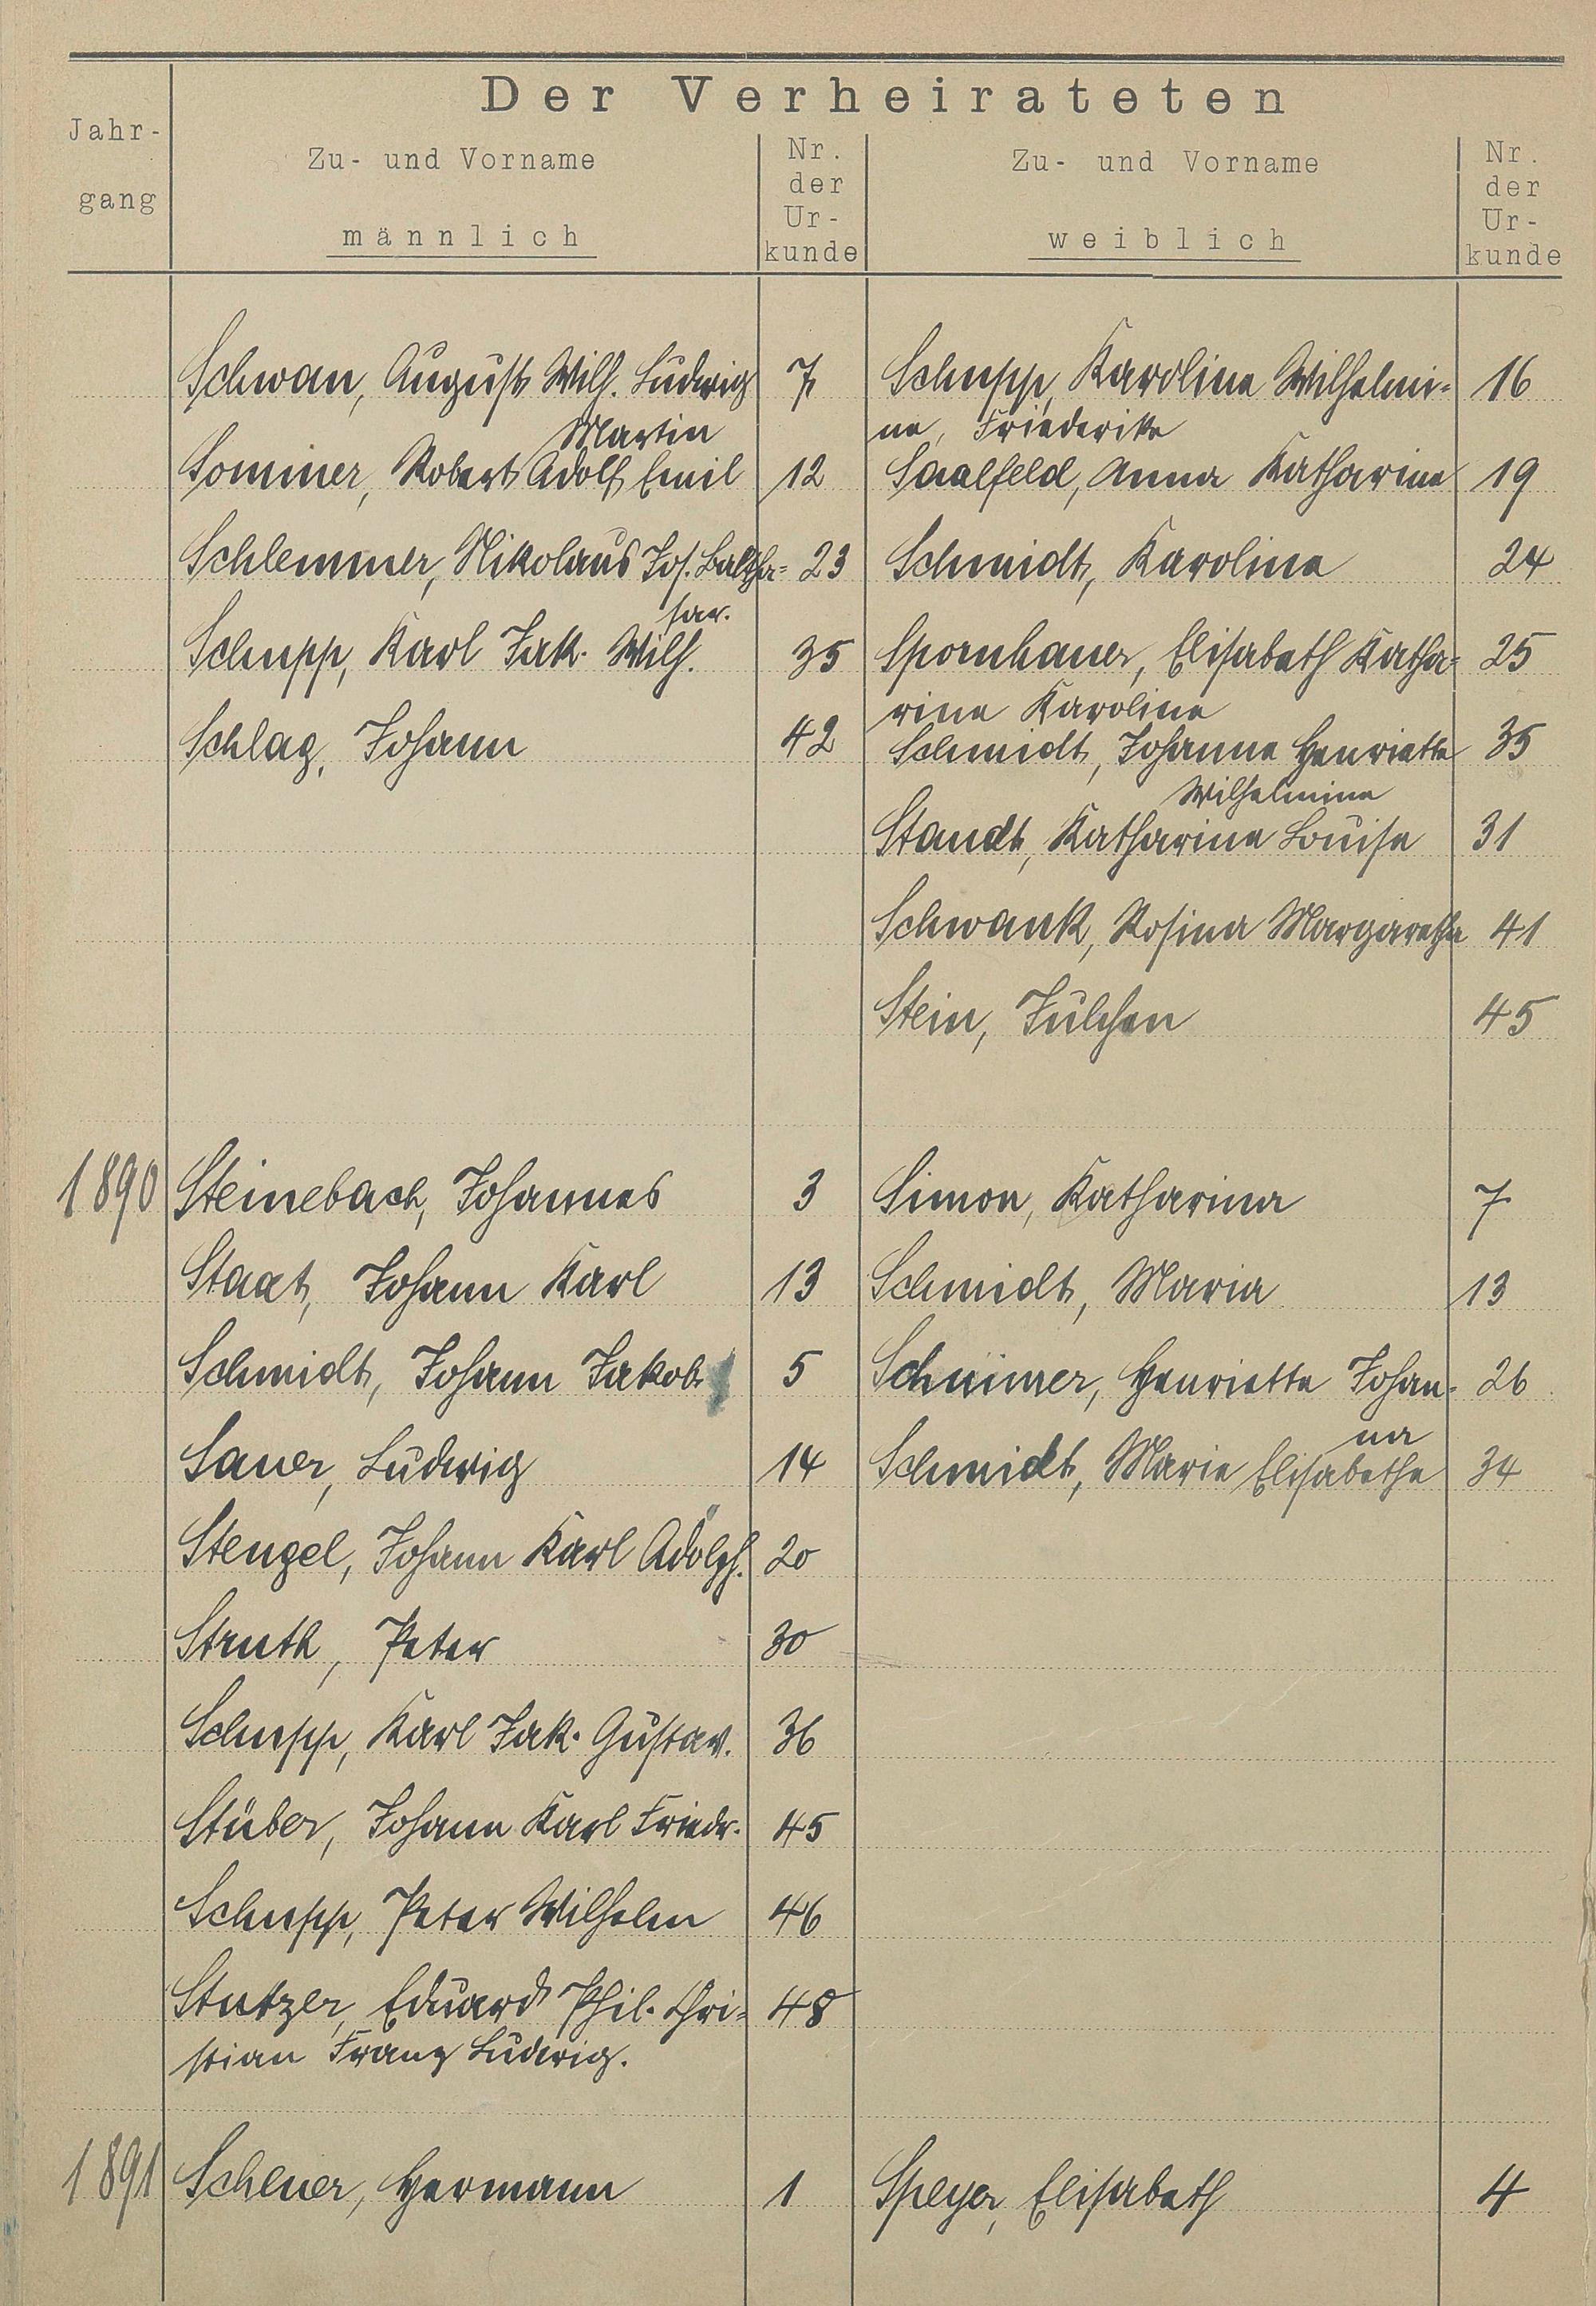 Der Verheirateten
Jahr-
gang
Zu- und Vorname
männlich
Nr.
der
Ur-
kunde
Zu- und Vorname
weiblich
Nr.
der
Ur-
kunde
Schwan, August Wilh. Ludwig 7 Schupp, Karoline Wilhelmi- 16
Martin ne, Friederike
Sommer, Robert Adolf Emil 12 Saalfeld, Anna Katharine 19
Schlemmer, Nikolaus Jos. Baltha- 23 Schmidt, Karoline 24
sar.
Schupp, Karl Jak. Wilh. 35 Spornhauer, Elisabeth Katha- 25
rine Karoline
Schlag, Johann 42 Schmidt, Johanna Henriette 35
Wilhelmine
Staudt, Katharine Louise 31
Schwank, Rosina Margaretha 41
Stein, Julchen 45
1890 Steinebach, Johannes 3 Simon, Katharina 7
Staat, Johann Karl 13 Schmidt, Maria 13
Schmidt, Johann Jakob 5 Henriette Johan- 26
na
Sauer, Ludwig 14 Schmidt, Marie Elisabethe 34
Stengel, Johann Karl Adolph. 20
Struth, Peter 30
Schupp, Karl Jak. Gustav. 36
Stüber, Johann Karl Friedr. 45
Schupp, Peter Wilhelm 46
Stutzer, Eduard Phil. Chri- 48
stian Franz Ludwig.
1891 Scheuer, Hermann 1 Speyer, Elisabeth 4